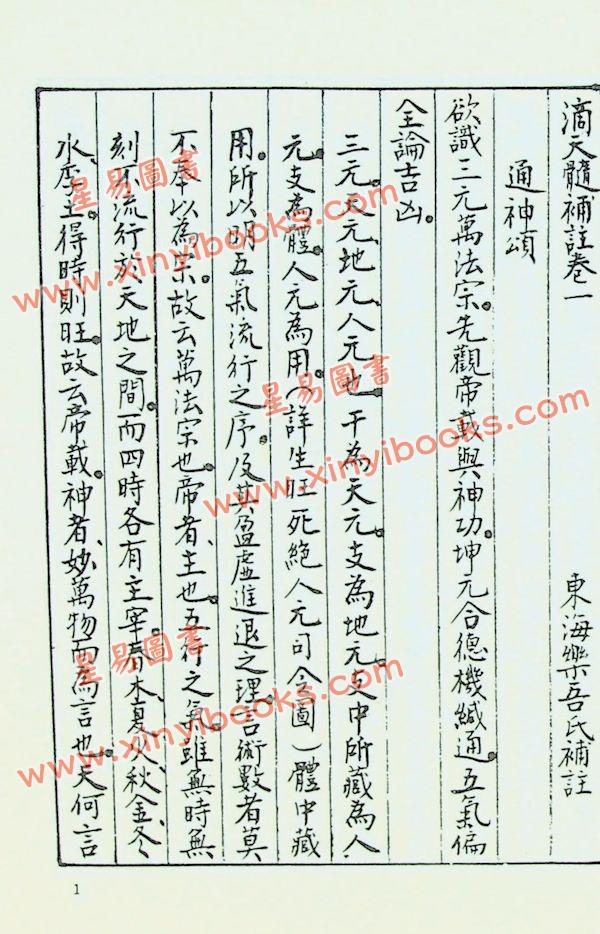 滴天髓補註卷一
東海樂吾氏補註
通神頌
欲識三元萬法宗。先觀帝載與神功。坤元合德機緘通。五氣偏
全論吉凶。
三元。天元、地元、人元也。干為天元。支為地元。支中所藏為人
元。支為體。人元為用。(詳生旺死絕人元司令圖)體中藏
用。所以明五氣流行之序。及其盈虛進退之理。言術數者莫
不奉以為宗。故云萬法宗也。帝者、主也。五行之氣。雖無時無
刻不流行於天地之間。而四時各有主宰。春木、夏火、秋金、冬
水、季土。得時則旺。故云帝載。神者、妙萬物而為言也。天何言
1
星易圖書
www.xinyibooks.com
星易圖書
www.xinyibooks.com
星易圖書
www.xinyibooks.com